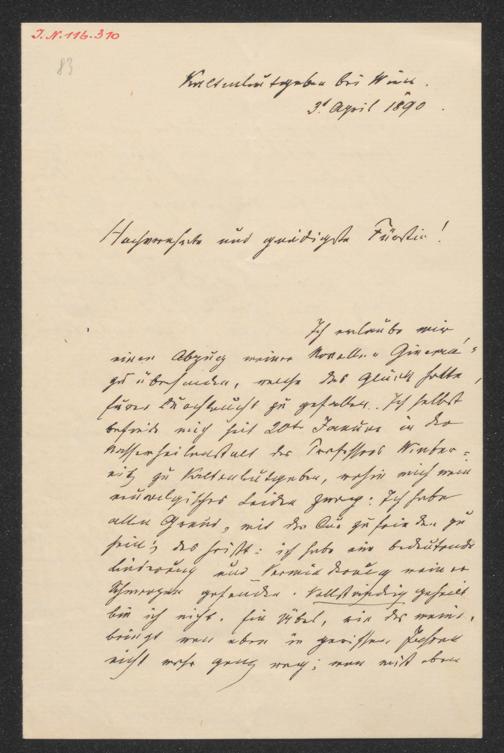 I.N. 116.310
83
Kaltenleutgeben bei Wien.
3t April 1890.
Hochverehrte und gnädigste Fürstin!
Ich erlaube mir
einen Abzug meiner Novelle „Ginevra"
zu übersenden, welche das Glück hatte,
Euer Durchlaucht zu gefallen. Ich selbst
befinde mich seit 20ten Januar in der
Wasserheilanstalt des Professors Winter-
nitz zu Kaltenleutgeben, wohin mich mein
neuralgisches Leiden zwang. Ich habe
allen Grund, mit der Cur zufrieden zu
sein; das heißt: ich habe eine bedeutende
Linderung und Verminderung meiner
Schmerzen gefunden. Vollständig geheilt
bin ich nicht. Ein Übel, wie das meine,
bringt man eben in gewissen Jahren
nicht mehr ganz weg; man muß eben